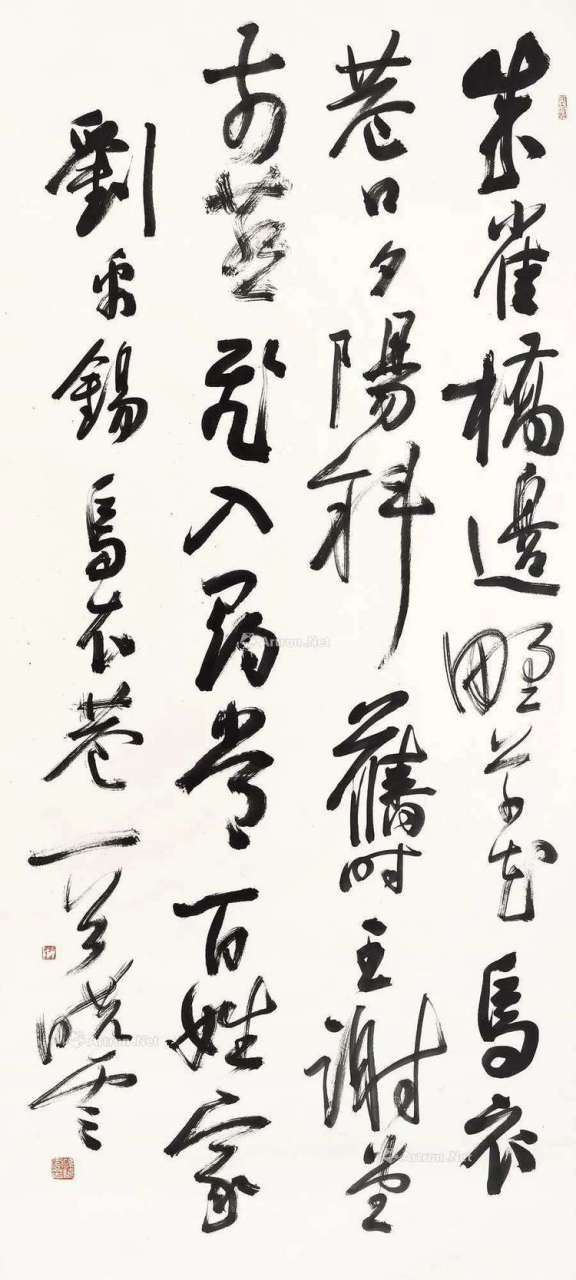 朱雀橋邊野草花烏衣
巷口夕陽斜舊时王謝堂
前燕飛入尋常百姓家
劉禹錫烏衣巷一首曉雲
Artron.Net